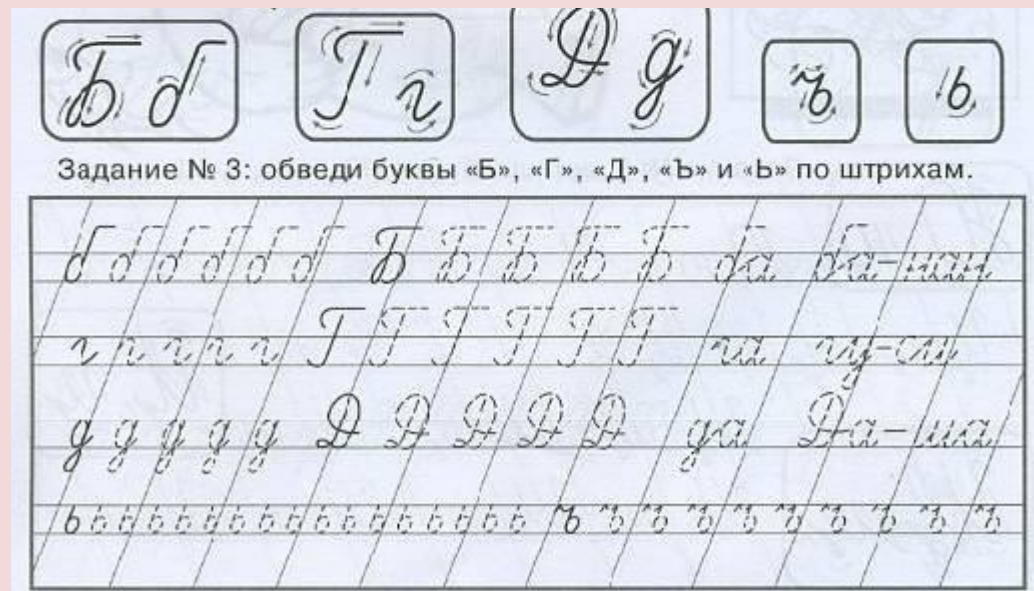 Б б Г г Д д ъ ь
Задание № 3: обведи буквы «Б», «Г», «Д», «Ъ» и «Ь» по штрихам.
б б б б б б Б Б Б Б Б ба ба-нан
г г г г г Г Г Г Г Г Г га гу-си
д д д д д Д Д Д Д Д да Да-ша
ь ь ь ь ь ь ь ь ь ь ь ь ь ь ь ь ь ъ ъ ъ ъ ъ ъ ъ ъ ъ ъ